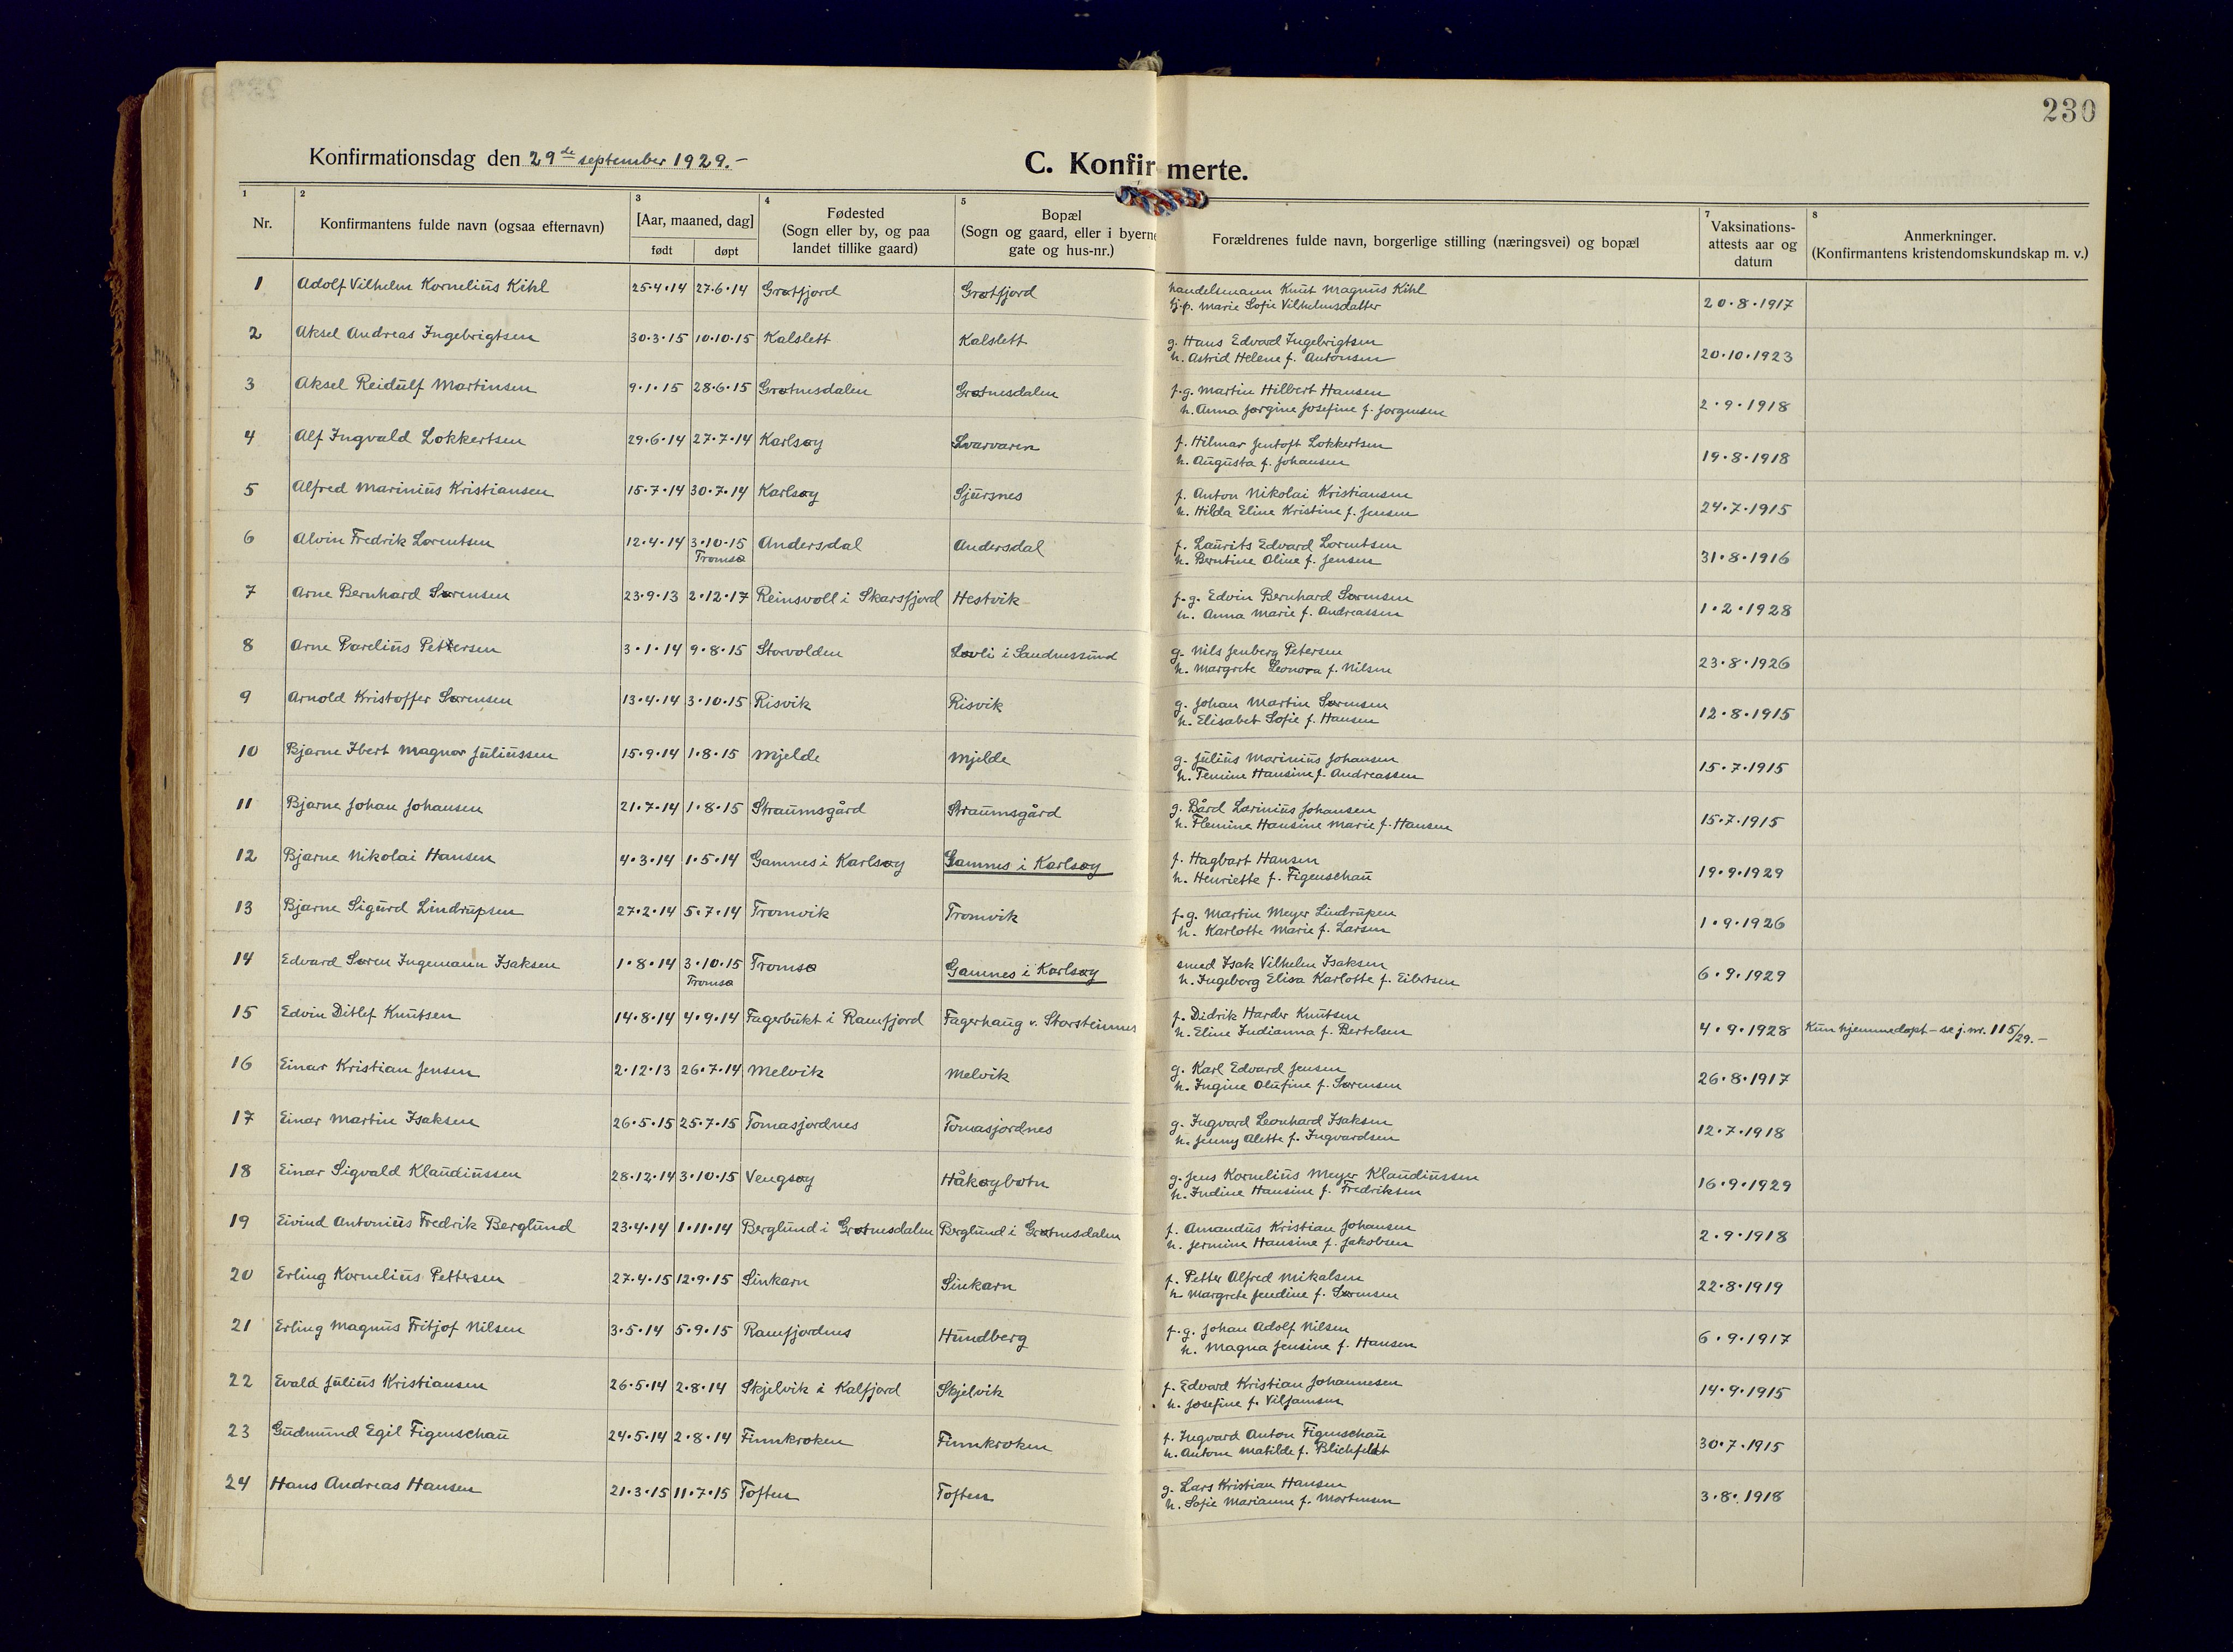 230
Konfirmationsdag den 29de september 1929.-
C. Konfirmerte.
1 2 3 4 5 7 8
Nr. Konfirmantens fulde navn (ogsaa efternavn) [Aar, maaned, dag] født døpt Fødested (Sogn eller by, og paa landet tillike gaard) Bopæl (Sogn og gaard, eller i byerne gate og hus-nr.) Forældrenes fulde navn, borgerlige stilling (næringsvei) og bopæl Vaksinations-attests aar og datum Anmerkninger. (Konfirmantens kristendomskundskap m. v.)
1 Adolf Vilhelm Kornelius Kihl 25.4.14 27.6.14 Grøtfjord Grøtfjord handelsmann Knut Magnus Kihl
hj.p. Marie Sofie Vilhelmsdatter 20.8.1917
2 Aksel Andreas Ingebrigtsen 30.3.15 10.10.15 Kalslett Kalslett g. Hans Edvard Ingebrigtsen
h. Astrid Helene f. Antonsen 20.10.1923
3 Aksel Reidulf Martinsen 9.1.15 28.6.15 Grøtnesdalen Grøtnesdalen f.g. Martin Hilbert Hansen
h. Anna Jørgine Josefine f. Jørgensen 2.9.1918
4 Alf Ingvald Lokkertsen 29.6.14 27.7.14 Karlsøy Svarvaren f. Hilmar Jentoft Lokkertsen
h. Augusta f. Johansen 19.8.1918
5 Alfred Marinius Kristiansen 15.7.14 30.7.14 Karlsøy Sjursnes f. Anton Nikolai Kristiansen
h. Hilda Eline Kristine f. Jensen 24.7.1915
6 Alvin Fredrik Lorentsen 12.4.14 3.10.15 Tromsø Andersdal Andersdal f. Laurits Edvard Lorentsen
h. Berntine Oline f. Jensen 31.8.1916
7 Arne Bernhard Sørensen 23.9.13 2.12.17 Reinsvoll i Skarsfjord Hestvik f.g. Edvin Bernhard Sørensen
h. Anna Marie f. Andreassen 1.2.1928
8 Arne Parelius Pettersen 3.1.14 9.8.15 Storvolden Løvli i Sandnessund g. Nils Jenberg Petersen
h. Margrete Leonora f. Nilsen 23.8.1926
9 Arnold Kristoffer Sørensen 13.4.14 3.10.15 Risvik Risvik g. Johan Martin Sørensen
h. Elisabet Sofie f. Hansen 12.8.1915
10 Bjarne Ibert Magnor Juliussen 15.9.14 1.8.15 Mjelde Mjelde g. Julius Marinius Johansen
h. Temine Hansine f. Andreassen 15.7.1915
11 Bjarne Johan Johansen 21.7.14 1.8.15 Straumsgård Straumsgård g. Bård Lorinius Johansen
h. Flemine Hansine Marie f. Hansen 15.7.1915
12 Bjarne Nikolai Hansen 4.3.14 1.5.14 Gamnes i Karlsøy Gamnes i Karlsøy f. Hagbart Hansen
h. Henriette f. Figenschau 19.9.1929
13 Bjarne Sigurd Lindrupsen 27.2.14 5.7.14 Tromvik Tromvik f.g. Martin Meyer Lindrupsen
h. Karlotte Marie f. Larsen 1.9.1926
14 Edvard Søren Ingemann Isaksen 1.8.14 3.10.15 Tromsø Tromsø Gamnes i Karlsøy smed Isak Vilhelm Isaksen
h. Ingeborg Elisa Karlotte f. Eibrtsen 6.9.1929
15 Edvin Ditlef Knutsen 14.8.14 4.9.14 Fagerbukt i Ramfjord Fagerhaug v. Storsteinnes f. Didrik Harder Knutsen
h. Eline Indianna f. Bertelsen 4.9.1928 Kun hjemmedøpt - se j.nr. 115/29.-
16 Einar Kristian Jensen 2.12.13 26.7.14 Melvik Melvik g. Karl Edvard Jensen
h. Ingine Olufine f. Sørensen 26.8.1917
17 Einar Martin Isaksen 26.5.15 25.7.15 Tomasjordnes Tomasjordnes g. Ingvard Leonhard Isaksen
h. Jenny Alette f. Ingvardsen 12.7.1918
18 Einar Sigvald Klaudiussen 28.12.14 3.10.15 Vengsøy Håkøybotn g. Jens Kornelius Meyer Klaudiussen
h. Indine Hansine f. Fredriksen 16.9.1929
19 Eivind Antonius Fredrik Berglund 23.4.14 1.11.14 Berglund i Grøtnesdalen Berglund i Grøtnesdalen f. Amandus Kristian Johansen
h. Jermine Hansine f. Jakobsen 2.9.1918
20 Erling Kornelius Pettersen 27.4.15 12.9.15 Sinkarn Sinkarn f. Petter Alfred Mikalsen
h. Margrete Jendine f. Sørensen 22.8.1919
21 Erling Magnus Fritjof Nilsen 3.5.14 5.9.15 Ramfjordnes Hundberg f.g. Johan Adolf Nilsen
h. Magna Jensine f. Hansen 6.9.1917
22 Evald Julius Kristiansen 26.5.14 2.8.14 Skjelvik i Kalfjord Skjelvik f. Edvard Kristian Johannesen
h. Josefine f. Viljamsen 14.9.1915
23 Gudmund Egil Figenschau 24.5.14 2.8.14 Finnkroken Finnkroken f. Ingvard Anton Figenschau
h. Antone Matilde f. Blichfeldt 30.7.1915
24 Hans Andreas Hansen 21.3.15 11.7.15 Toften Toften g. Lars Kristian Hansen
h. Sofie Marianne f. Mortensen 3.8.1918